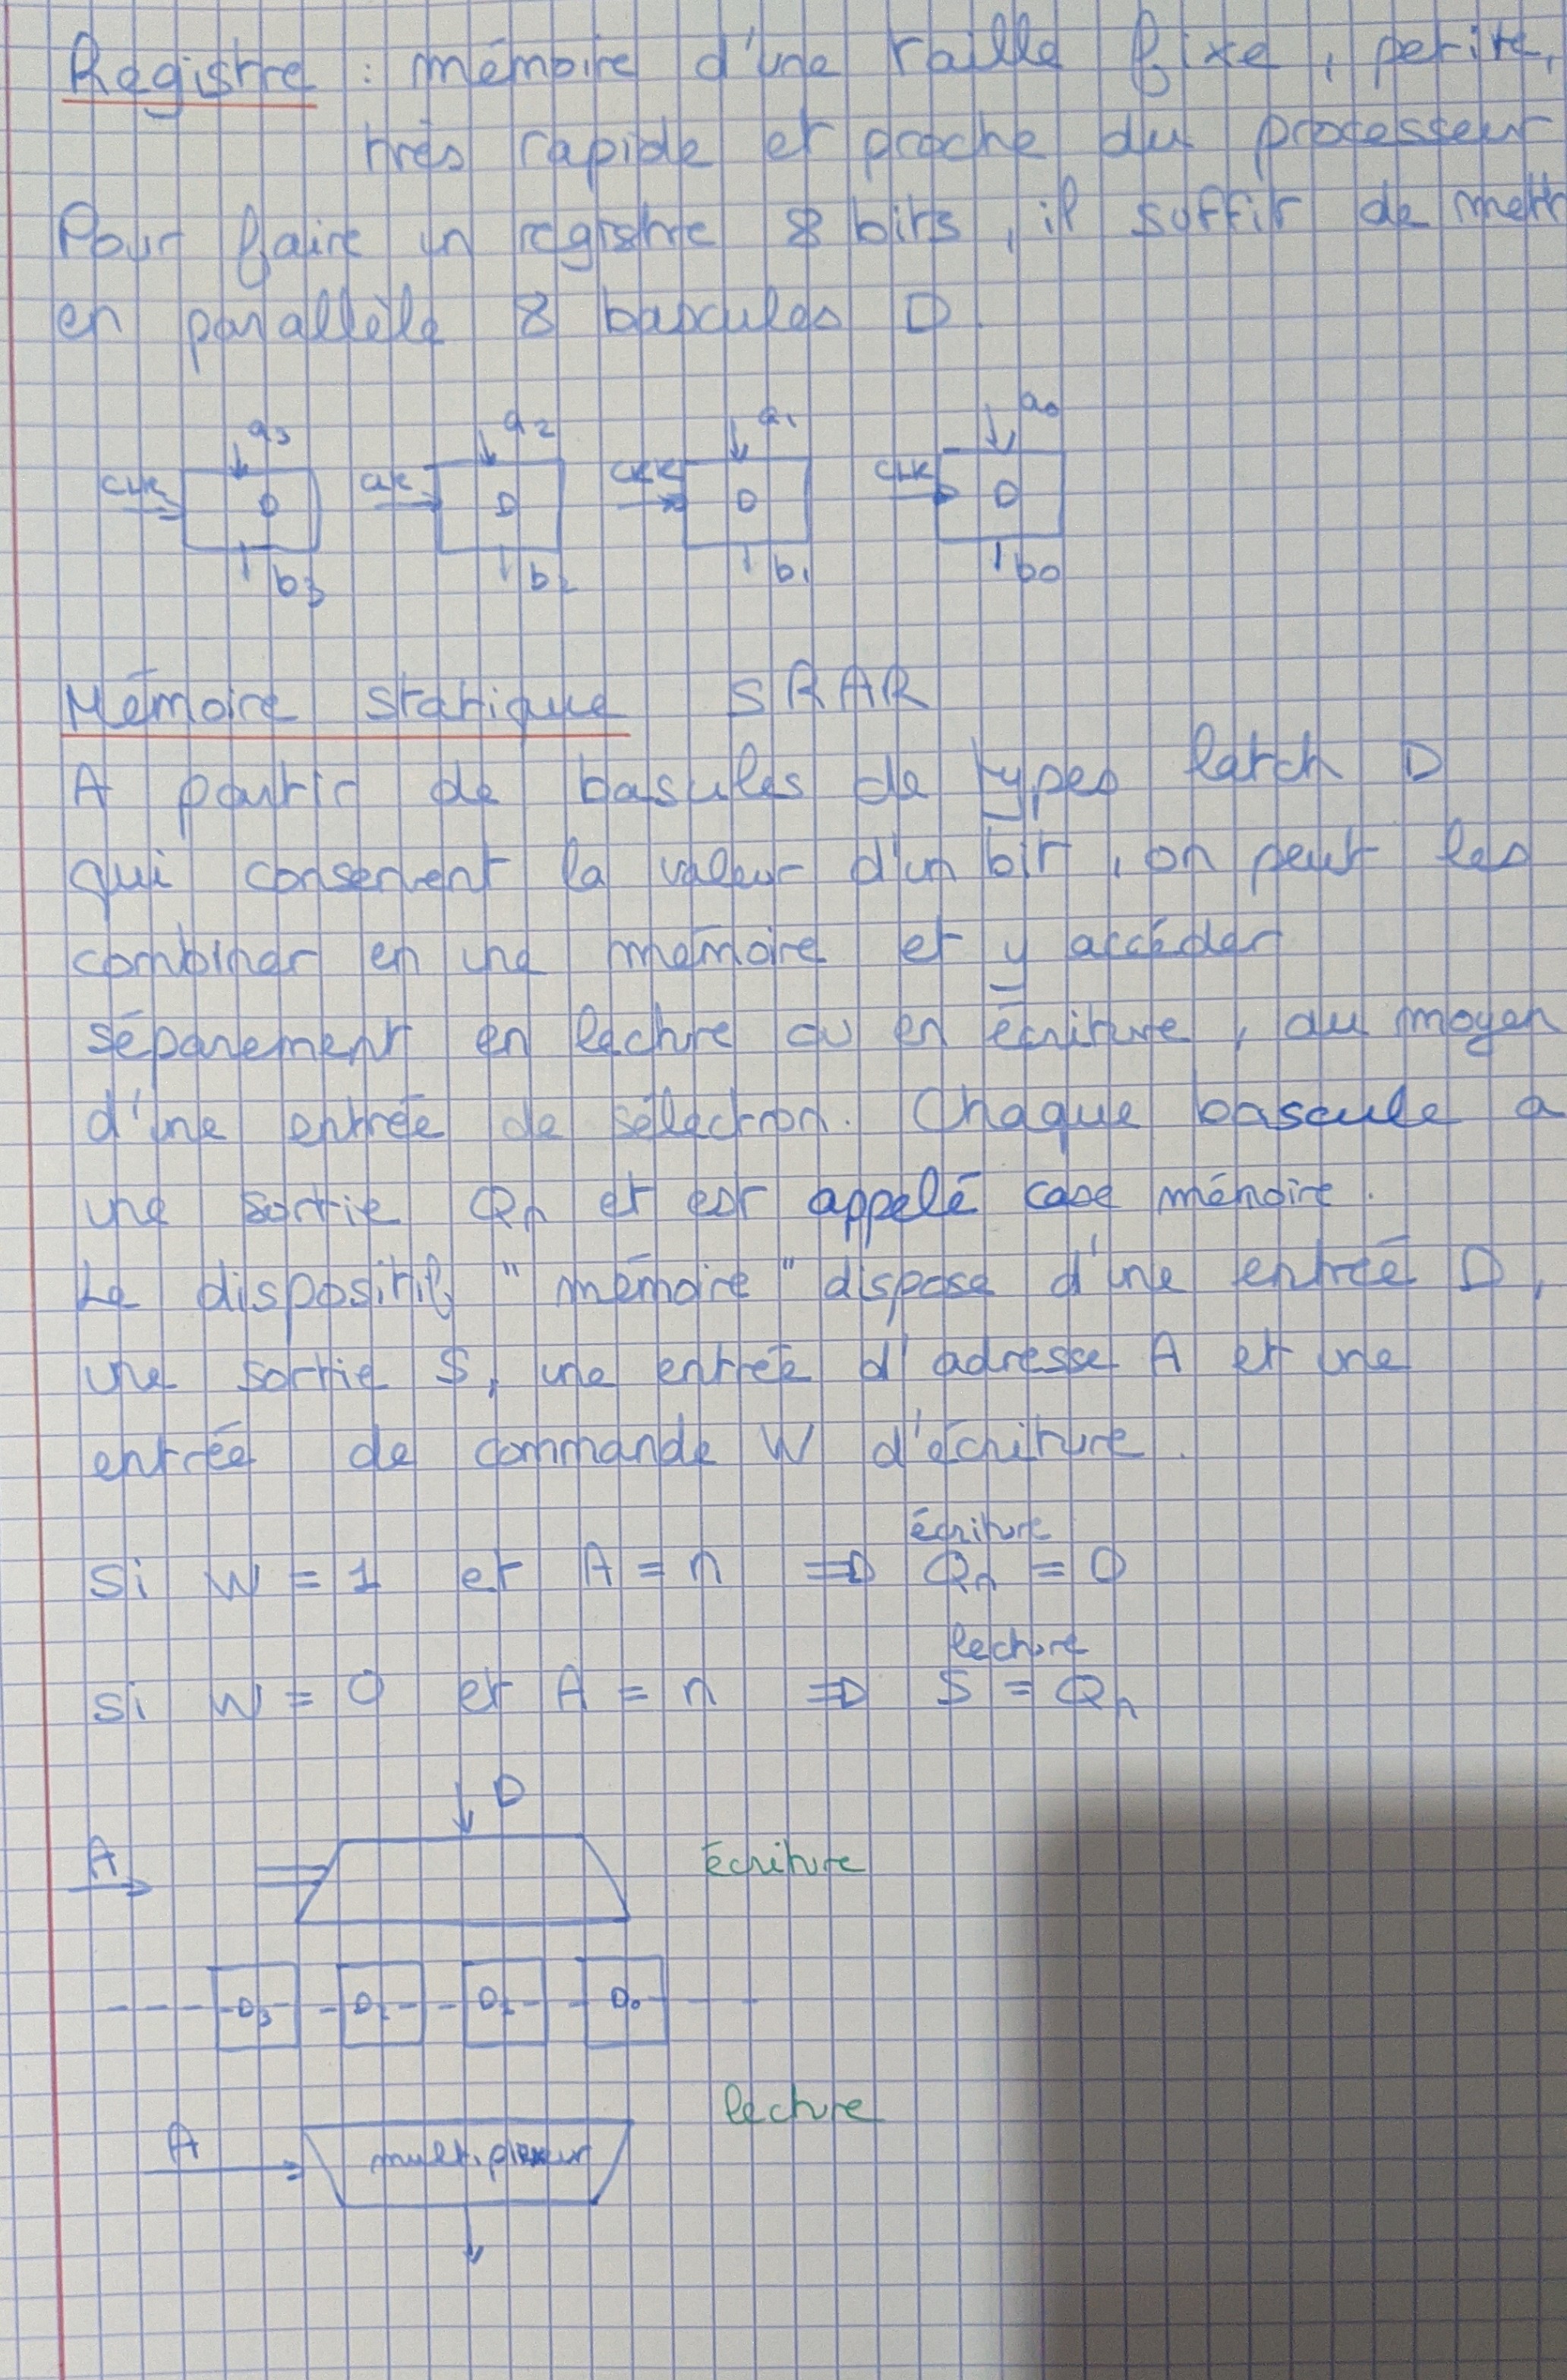 Registre : mémoire d'une taille fixe, petite,
très rapide et proche du processeur
Pour faire un registre 8 bits, il suffit de mettr
en parallèle 8 bascules D.
a3 a2 a1 a0
CLK CLK CLK CLK
D D D D
b3 b2 b1 b0
Mémoire statique SRAR
A partir de basules de types latch D
qui conservent la valeur d'un bit, on peut les
combiner en une mémoire et y accéder
séparement en lecture ou en écriture, au moyen
d'une entrée de sélection. Chaque bascule a
une sortie Qn et est appelé case mémoire.
Le dispositif "mémoire" dispose d'une entrée D,
une sortie S, une entrée d'adresse A et une
entrée de commande W d'écriture.
écriture
Si W = 1 et A = n => Qn = D
lecture
Si W = 0 et A = n => S = Qn
D
A écriture
D3 D2 D1 D0
lecture
A multiplexeur